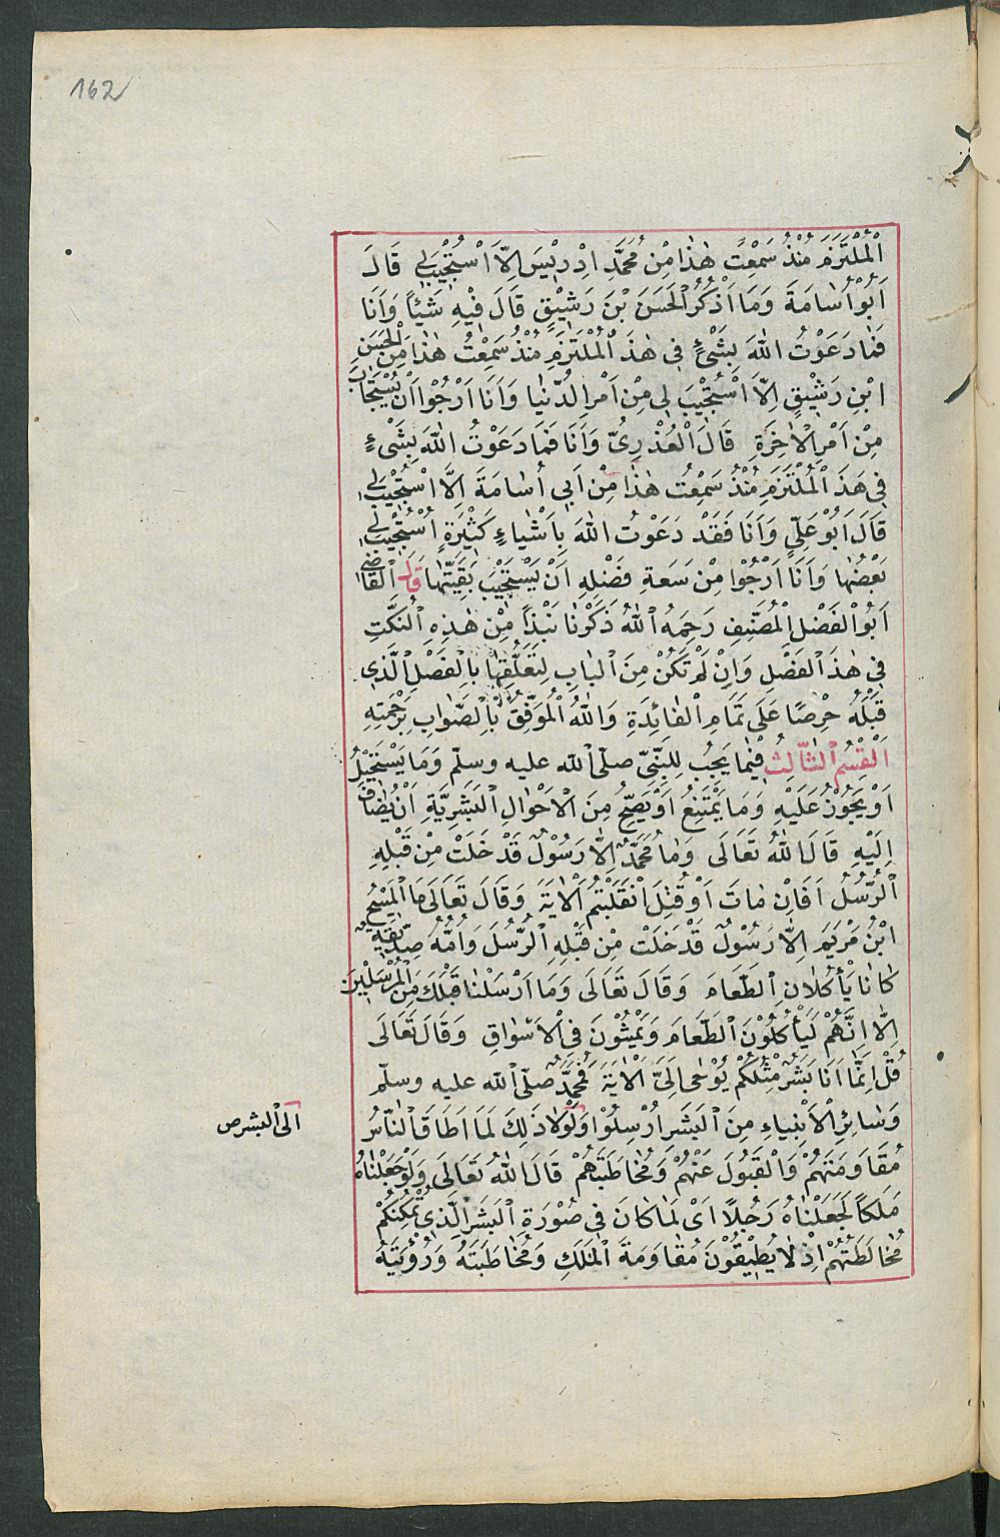 162
الْمُلْتَزَمِ مُنْذُ سَمِعْتُ هٰذَا مِنْ مُحَمَّدِ اِدْرِيْسَ اِلَّا اُسْتُجِيْبَ لِي قَالَ
اَبُوْ اُسَامَةَ وَمَا اَذْكُرُ الْحَسَنَ بْنَ رَشِيْقٍ قَالَ فِيْهِ شَيْئًا وَاَنَا
فَمَا دَعَوْتُ اللهَ بِشَىْءٍ فِي هٰذَ الْمُلْتَزَمِ مُنْذُ سَمِعْتُ هٰذَا مِنَ الْحَسَنِ
ابْنِ رَشِيْقٍ اِلَّا اُسْتُجِيْبَ لِي مِنْ اَمْرِ الدُّنْيَا وَاَنَا اَرْجُوْا اَنْ يُسْتَجَابَ
مِنْ اَمْرِ الْاٰخِرَةِ قَالَ الْعُذْرِىُّ وَاَنَا فَمَا دَعَوْتُ اللهَ بِشَىْءٍ
فِي هَذَ الْمُلْتَزَمِ مُنْذُ سَمِعْتُ هٰذَا مِنْ اَبِي اُسَامَةَ اِلَّا اسْتُجِيْبَ لِي
قَالَ اَبُوْ عَلِيٍّ وَاَنَا فَقَدْ دَعَوْتُ اللهَ بِاَشْيَاءٍ كَثِيْرَةٍ اُسْتُجِيْبَ لِي
بَعْضُهَا وَاَنَا اَرْجُوْا مِنْ سَعَةِ فَضْلِهِ اَنْ يَسْتَجِيْبَ بَقِيَّتَهَا قَالَ الْقَاضِي
اَبُوْ الْفَضْلِ الْمُصَنِّفِ رَحِمَهُ اللهُ ذَكَرْنَا نَبْذًا مِنْ هٰذِهِ النُّكَتِ
فِي هٰذَ الْفَضْلِ وَاِنْ لَمْ تَكُنْ مِنَ الْبَابِ لِتَعَلُّقِهَا بِالْفَصْلِ الَّذِي
قَبْلَهُ حِرْصًا عَلَى تَمَامِ الْفَائِدَةِ وَاللهُ الْمُوَفِّقُ بِالصَّوَابِ بِرَحْمَتِهِ
اَلْقِسْمُ الثَّالِثُ فِيْمَا يَجِبُ لِلنَّبِىِّ صلّى الله عليه وسلّم وَمَا يَسْتَحِيْلُ
اَوْ يَجُوْزُ عَلَيْهِ وَمَا يَمْتَنِعُ اَوْ يَصِحُّ مِنَ الْاَحْوَالِ الْبَشَرِيَّةِ اَنْ يُضَافَ
اِلَيْهِ قَالَ اللهُ تَعَالَى وَمَا مُحَمَّدٌ اِلَّا رَسُوْلٌ قَدْ خَلَتْ مِنْ قَبْلِهِ
الرُّسُلُ اَفَاِنْ مَاتَ اَوْ قُتِلَ انْقَلَبْتُمْ اَلْاٰيَةَ وَقَالَ تَعَالَى مَا الْمَسِيْحُ
ابْنُ مَرْيَمَ اِلَّا رَسُوْلٌ قَدْ خَلَتْ مِنْ قَبْلِهِ الرُّسُلَ وَاُمُّهُ صِدِّيْقَةٌ
كَانَا يَأْكُلَانِ الطَّعَامَ وَقَالَ تَعَالَى وَمَا اَرْسَلْنَا قَبْلَكَ مِنَ الْمُرْسَلِيْنَ
اِلَّا اِنَّهُمْ لَيَأْكُلُوْنَ الطَّعَامَ وَيَمْشُوْنَ فِي الْاَسْوَاقِ وَقَالَ تَعَالَى
قُلْ اِنَّمَا اَنَا بَشَرٌ مِثْلُكُمْ يُوْحَى اِلَىَّ اَلْاٰيَةَ فَمُحَمَّدٌ صلّى الله عليه وسلّم
وَسَائِرِ الْاَنْبِيَاءِ مِنَ الْبَشَرِ اُرْسِلُوْا وَلَوْلَا ذَلِكَ لَمَا اَطَاقَ النَّاسُ
الى البشر ص
مُقَاوَمَتَهُمْ وَالْقَبُولَ عَنْهُمْ وَمُخَاطَبَتَهُمْ قَالَ اللهُ تَعَالَى وَلَوْ جَعَلْنَاهُ
مَلَكًا لَجَعَلْنَاهُ رَجُلًا اَىْ لَمَا كَانَ فِي صُوْرَةِ الْبَشَرِ الَّذِي تُمْكِنُكُمْ
مُخَالَطَتُهُمْ اِذْ لَا يُطِيْقُوْنَ مُقَاوَمَةَ الْمَلَكِ وَمُخَاطَبَتَهُ وَرُؤْيَتَهُ